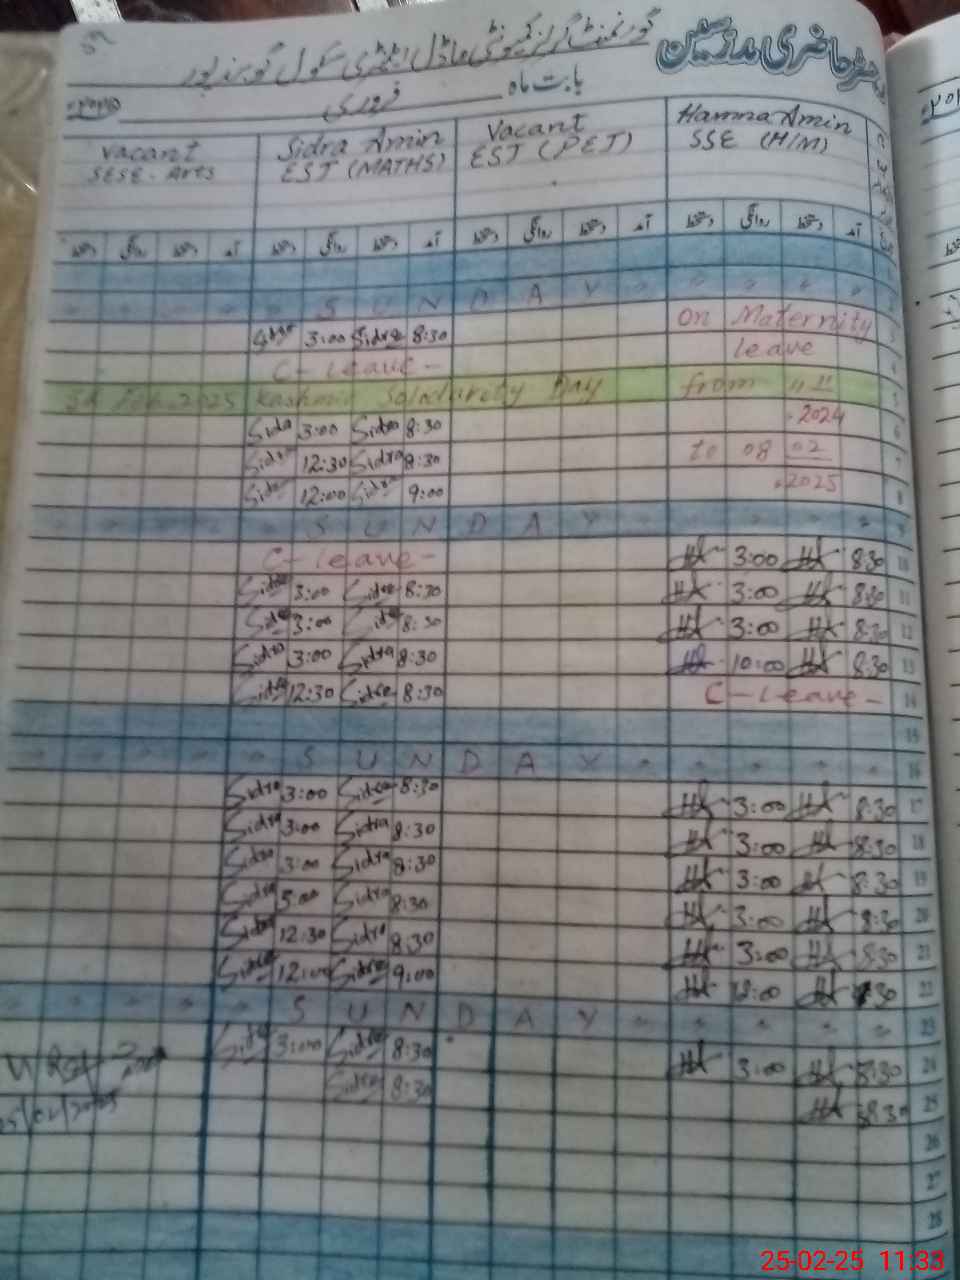 رجسٹر حاضری مدرسین
گورنمنٹ گرلز کمیونٹی ماڈل ایلیمنٹری سکول گوبند پور
بابت ماہ فروری ۲۰۲۵ء
Vacant SESE - Arts Sidra Amin EST (MATHS) Vacant EST (PET) Hamna Amin SSE (H/M)
دستخط روانگی دستخط آمد دستخط روانگی دستخط آمد دستخط روانگی دستخط آمد دستخط روانگی دستخط آمد
1
SUNDAY 2
3:00 Sidra 8:30 On Maternity 3
C-leave- leave 4
Feb-2025 Kashmir Soladarity Day from 11 5
Sidra 3:00 Sidra 8:30 2024 6
Sidra 12:30 Sidra 8:30 to 08 02 7
Sidra 12:00 Sidra 9:00 2025 8
SUNDAY 9
C-leave- 3:00 8:30 10
Sidra 3:00 Sidra 8:30 3:00 8:30 11
Sidra 3:00 Sidra 8:30 3:00 8:30 12
Sidra 3:00 Sidra 8:30 10:00 8:30 13
Sidra 12:30 Sidra 8:30 C-leave- 14
15
SUNDAY 16
Sidra 3:00 Sidra 8:30 3:00 8:30 17
Sidra 3:00 Sidra 8:30 3:00 8:30 18
Sidra 3:00 Sidra 8:30 3:00 8:30 19
Sidra 3:00 Sidra 8:30 3:00 8:30 20
Sidra 12:30 Sidra 8:30 3:00 8:30 21
Sidra 12:00 Sidra 9:00 12:00 8:30 22
SUNDAY 23
Sidra 3:00 Sidra 8:30 3:00 8:30 24
Sidra 8:30 8:30 25
25/02/2025
26
27
28
25-02-25 11:33